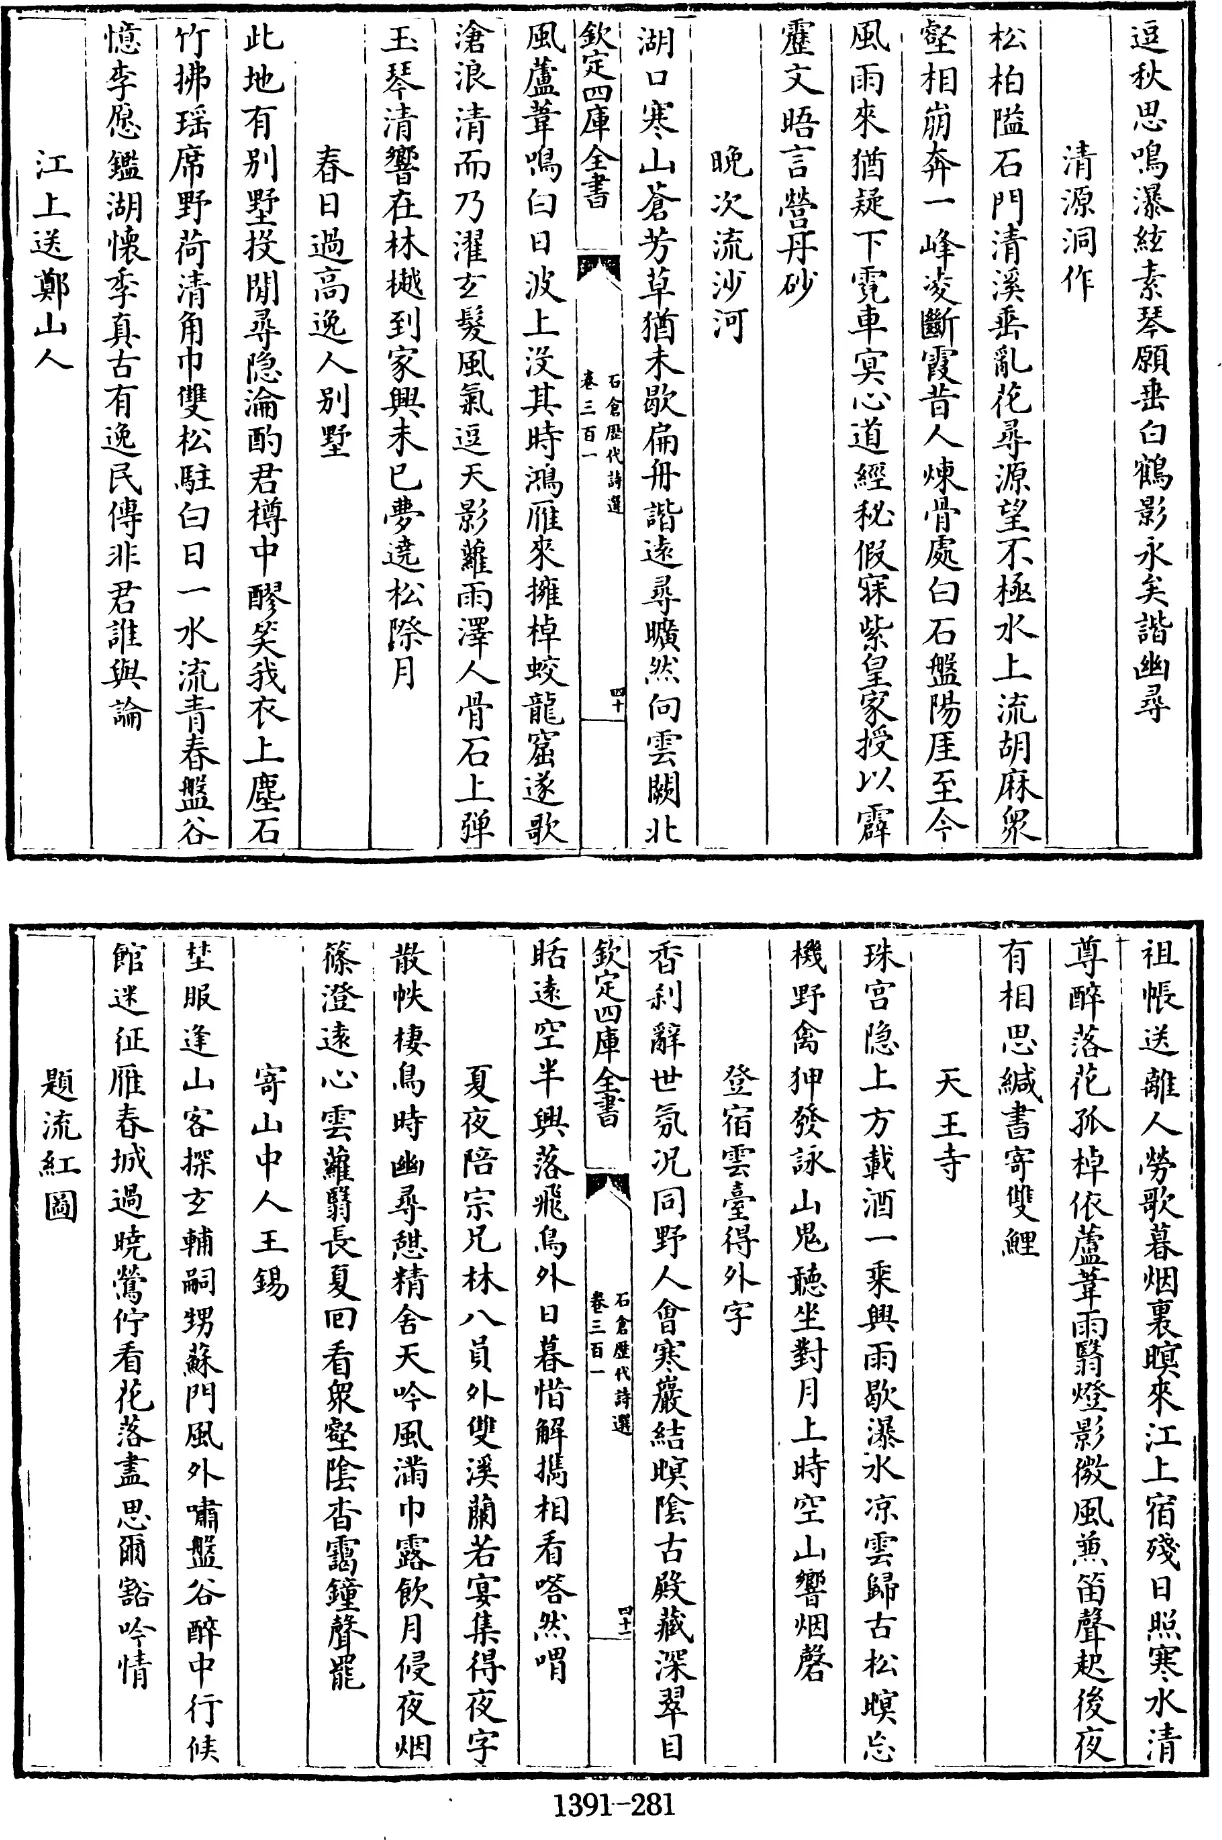 逗秋思鳴瀑絃素琴願垂白鶴影永矣諧幽尋
清源洞作
松柏隘石門清溪垂亂花尋源望不極水上流胡麻衆
壑相崩奔一峰凌斷霞昔人煉骨處白石盤陽厓至今
風雨來猶疑下霓車冥心道經秘假寐紫皇家授以霹
靂文晤言營丹砂
晚次流沙河
湖口寒山蒼芳草猶未歇扁舟諧遠尋曠然向雲闕北
欽定四庫全書
石倉歷代詩選
卷三百一
四十
風蘆葦鳴白日波上没其時鴻雁來擁棹蛟龍窟遂歌
滄浪清而乃濯玄髮風氣逗天影蘿雨澤人骨石上彈
玉琴清響在林樾到家興未已夢遶松際月
春日過高逸人别墅
此地有别墅投閒尋隐淪酌君樽中醪笑我衣上塵石
竹拂瑶席野荷清角巾雙松駐白日一水流青春盤谷
憶李愿鑑湖懷季真古有逸民傳非君誰與論
江上送鄭山人
祖帳送離人勞歌暮烟裏暝來江上宿殘日照寒水清
尊醉落花孤棹依蘆葦雨翳燈影微風煮笛聲起後夜
有相思緘書寄雙鯉
天王寺
珠宫隐上方載酒一乘興雨歇瀑水凉雲歸古松暝忘
機野禽狎發詠山鬼聽坐對月上時空山響烟磬
登宿雲臺得外字
香刹辭世氛况同野人會寒巖結暝陰古殿藏深翠目
欽定四庫全書
石倉歷代詩選
卷三百一
四十一
眎遠空半興落飛鳥外日暮惜解携相看嗒然喟
夏夜陪宗兄林八員外雙溪蘭若宴集得夜字
散帙棲鳥時幽尋憇精舍天吟風滿巾露飲月侵夜烟
篠澄遠心雲蘿翳長夏回看衆壑陰杳靄鐘聲罷
寄山中人王錫
埜服逢山客探玄輔嗣甥蘇門風外嘯盤谷醉中行候
館迷征雁春城過曉鶯佇看花落盡思爾豁吟情
題流紅圖
1391-281